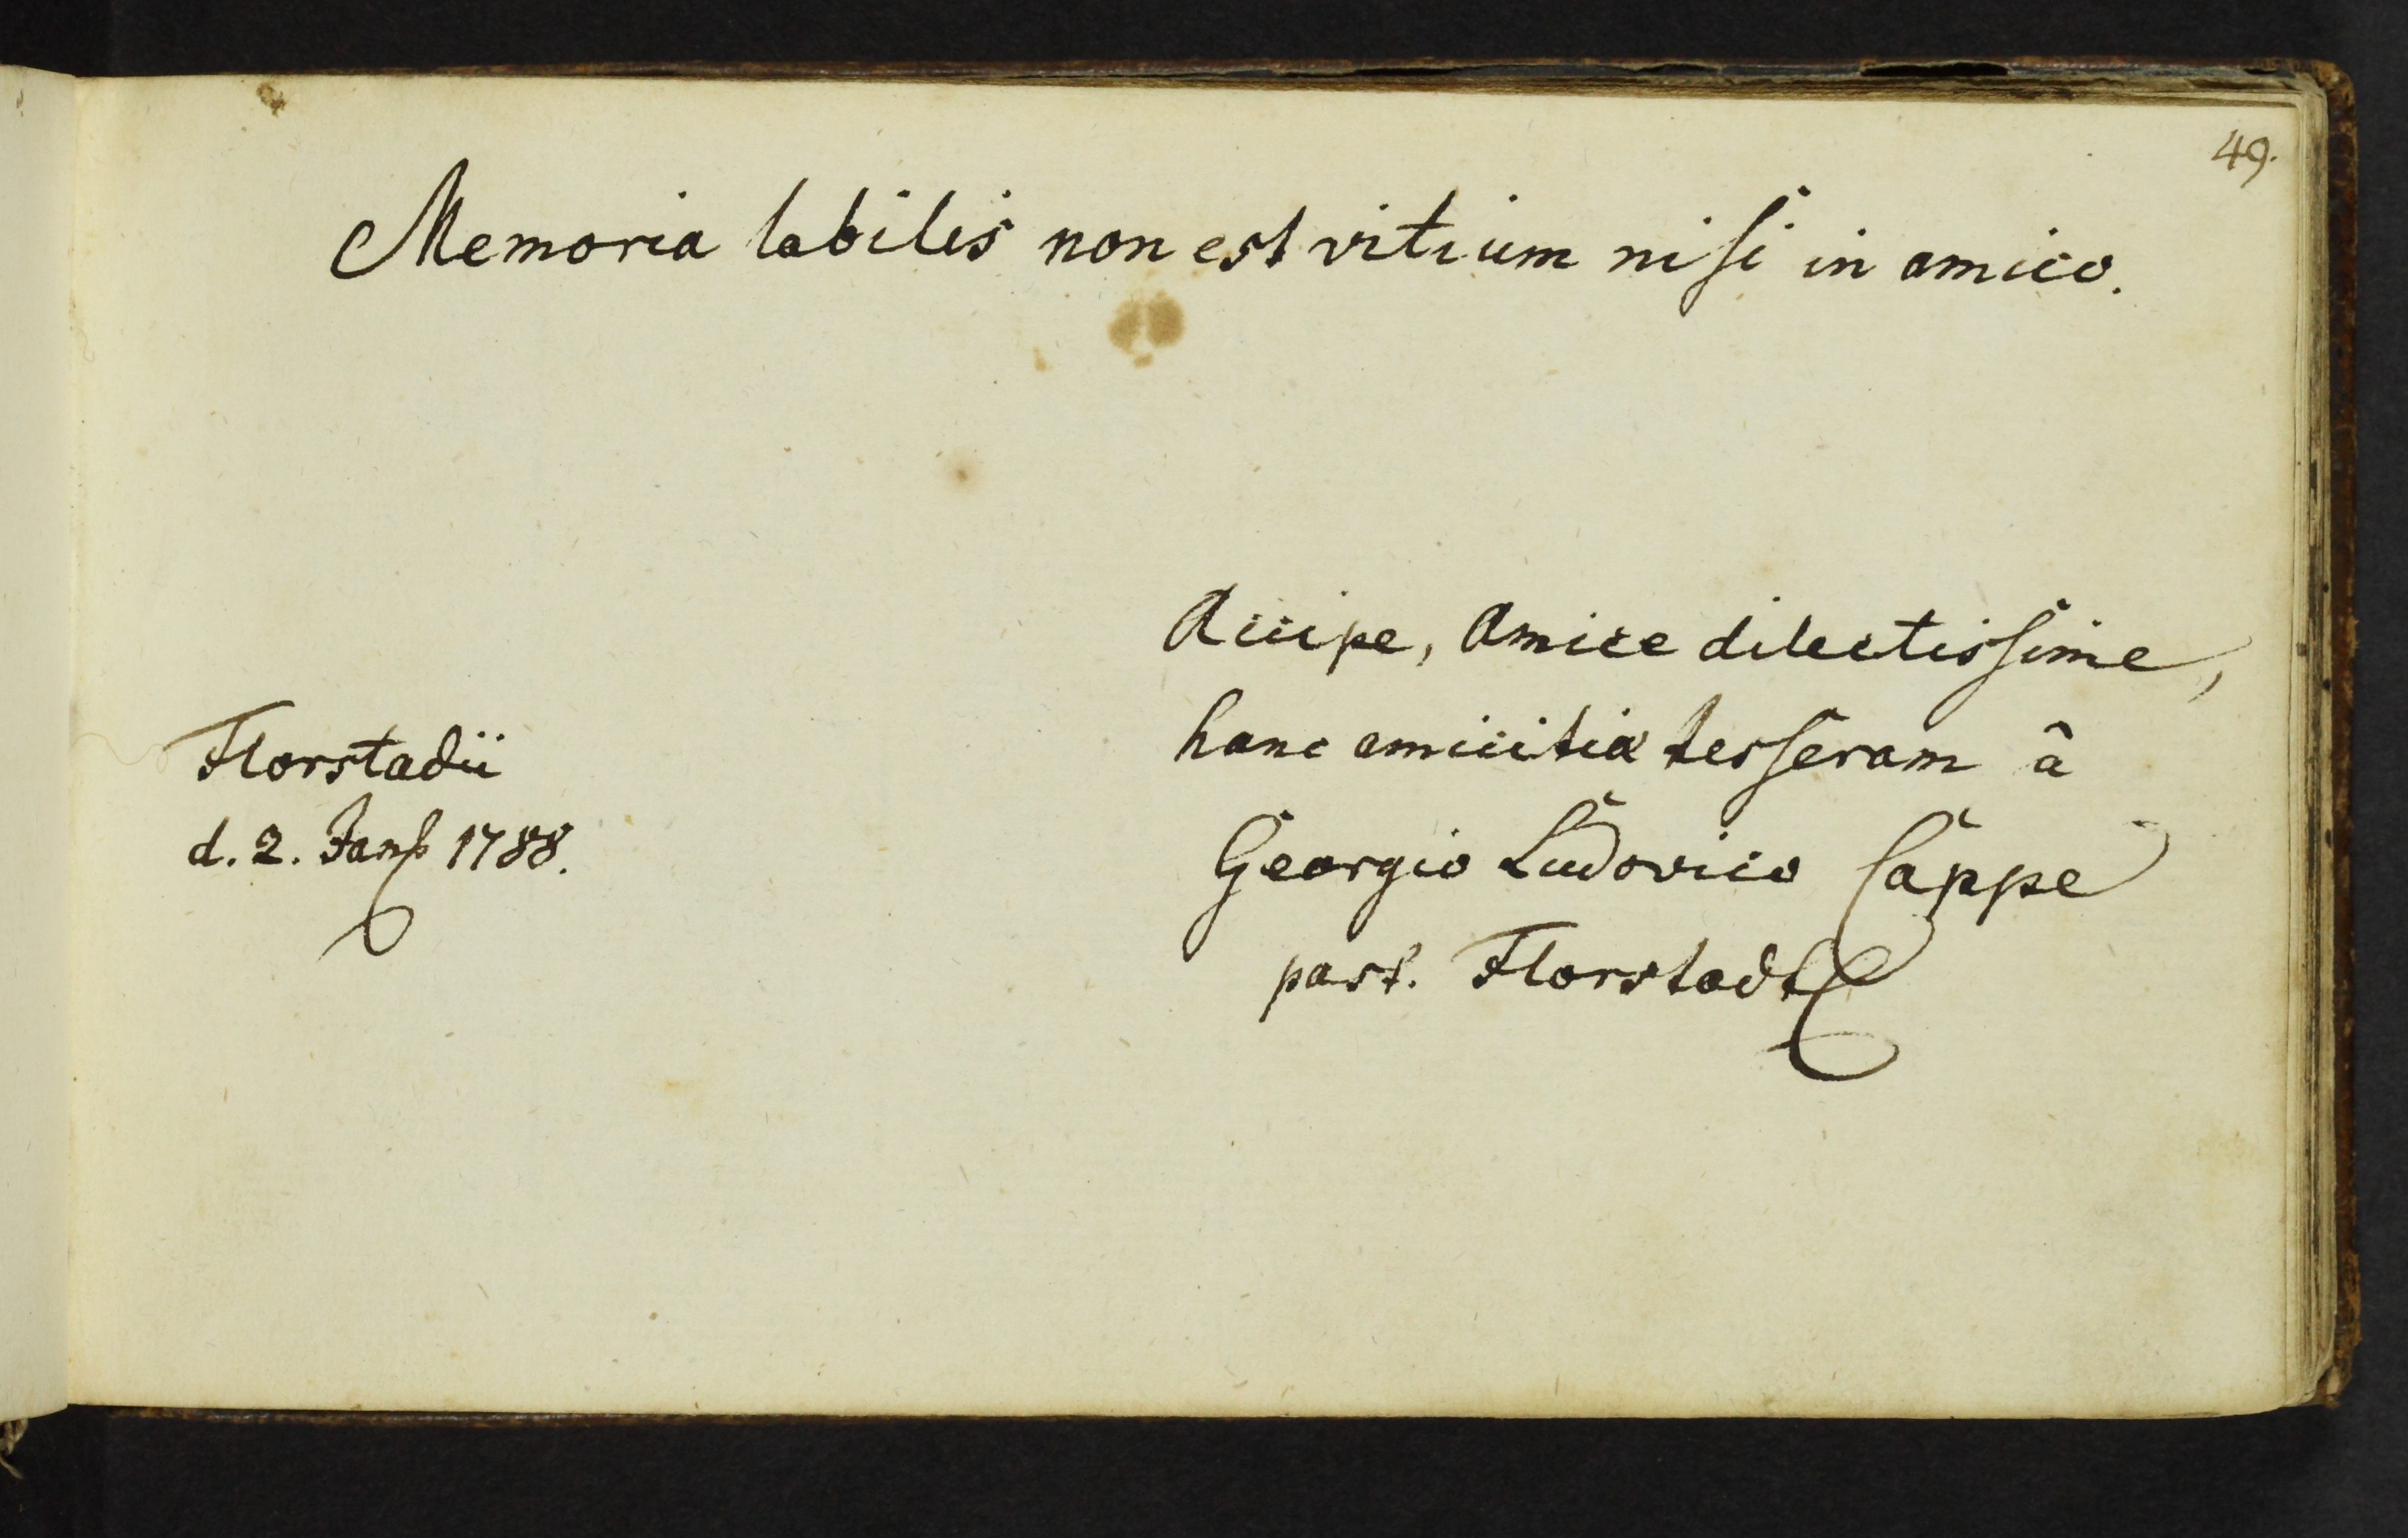 49.
Memoria labilis non est vitium nisi in amico.
Accipe, Amice dilectissime,
hanc amicitiæ tesseram â
Georgio Ludovico Cappe
past. Florstadt
Florstadii
d. 2. Jan. 1788.